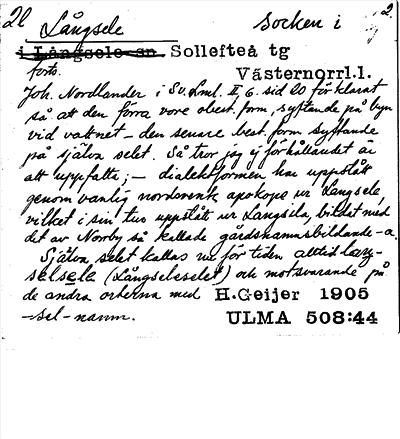 20 Långsele socken i 2.
i Långsele sn Sollefteå tg
forts. Västernorrl.l.
Joh. Nordlander i Sv. Lml. II, 6. sid 20 förklarat
så att den förra vore obest. form, syftande på byn
vid vattnet – den senare best. form syftande
på själva selet. Så tror jag ej förhållandet är
att uppfatta; – dialektformen har uppstått
genom vanlig nordsvensk apokope ur Långsele,
vilket i sin tur uppstått ur Langsila, bildat med
det av Noreen så kallade gårdsnamnsbildande -a.
Själva selet kallas nu för tiden alltid lang-
selsele (Långseleselet) och motsvarande på
de andra orterna med H.Geijer 1905
-sel-namn. ULMA 508:44